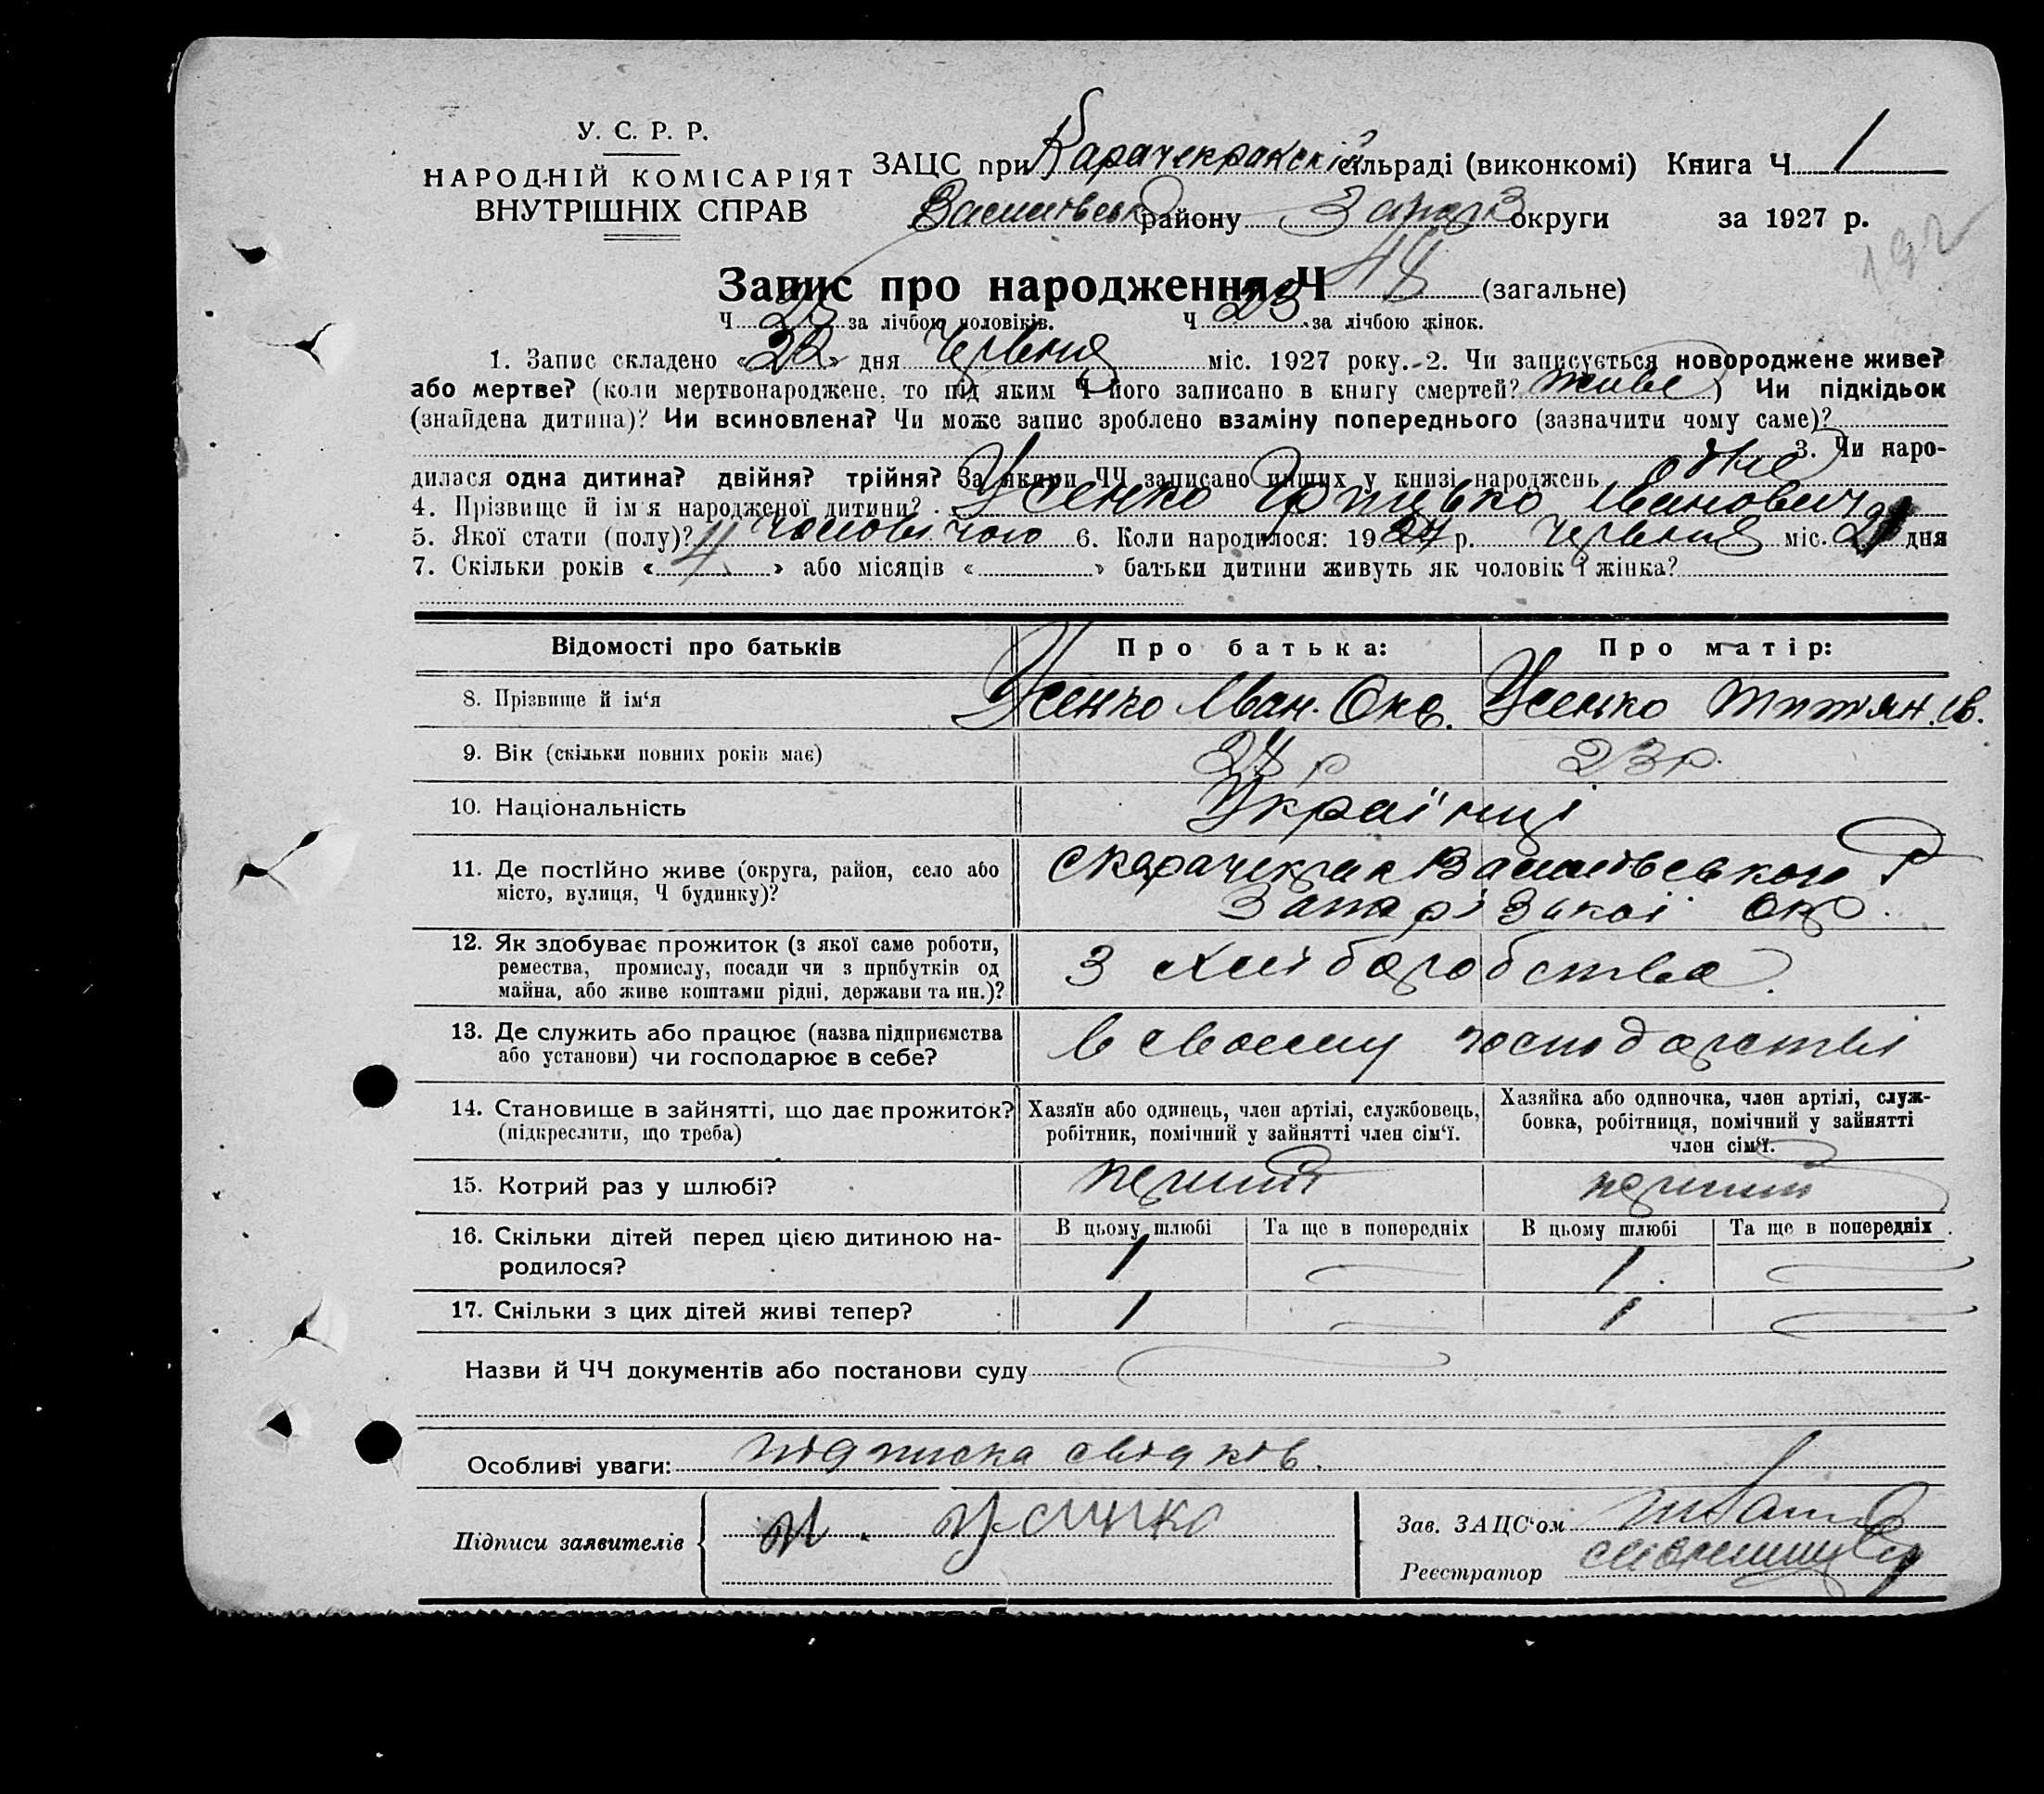 У. С. Р. Р.
НАРОДНІЙ КОМІСАРІЯТ
ВНУТРІШНІХ СПРАВ
ЗАЦС при Карачекракскій сільраді (виконкомі) Книга Ч. 1
Василівськ району Запоріз округи за 1927 р.
192
Запис про народження Ч 48 (загальне)
Ч. 25 за лічбою чоловіків. Ч 23 за лічбою жінок.
1. Запис складено «22» дня Червня міс. 1927 року. 2. Чи записується новороджене живе?
або мертве? (коли мертвонароджене, то під яким Ч його записано в книгу смертей? живе) Чи підкідьок
(знайдена дитина)? Чи всиновлена? Чи може запис зроблено взаміну попереднього (зазначити чому саме)?
3. Чи наро-
дилася одна дитина? двійня? трійня? За якими ЧЧ записано инших у книзі народжень одне
4. Прізвище й ім'я народженої дитини? Усенко Іванович
5. Якої стати (полу)? чоловічого 6. Коли народилося: 1927 р. червня міс. дня
7. Скільки років «4» або місяців « » батьки дитини живуть як чоловік і жінка?
Відомості про батьків Про батька: Про матір:
8. Прізвище й ім'я Усенко Іван. Усенко Ів.
9. Вік (скільки повних років має) 24 р 23 р.
10. Національність Українці
11. Де постійно живе (округа, район, село або місто, вулиця, Ч будинку)? с Карачекрак Василівського Р
Запорізької Окр.
12. Як здобуває прожиток (з якої саме роботи,
ремества, промислу, посади чи з прибутків од
майна, або живе коштами рідні, держави та ин.)? З хліборобства
13. Де служить або працює (назва підприємства
або установи) чи господарює в себе? в своєму господарстві
14. Становище в зайнятті, що дає прожиток?
(підкреслити, що треба)
Хазяїн або одинець, член артілі, службовець,
робітник, помічний у зайнятті член сім'ї.
Хазяйка або одиночка, член артілі, служ-
бовка, робітниця, помічний у зайнятті
член сім'ї.
15. Котрий раз у шлюбі? перший перший
16. Скільки дітей перед цією дитиною на-
родилося?
В цьому шлюбі Та ще в попередніх В цьому шлюбі Та ще в попередніх
1 1
17. Скільки з цих дітей живі тепер? 1 1
Назви й ЧЧ документів або постанови суду
Особливі уваги: підписка свідків.
Підписи заявителів
Зав. ЗАЦС'ом
Реєстратор